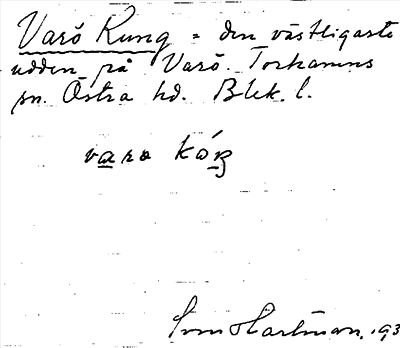 Varö Kung = den västligaste
udden på Varö. Torhamns
sn. Östra hd. Blek. l.
Sven Hartman, 193